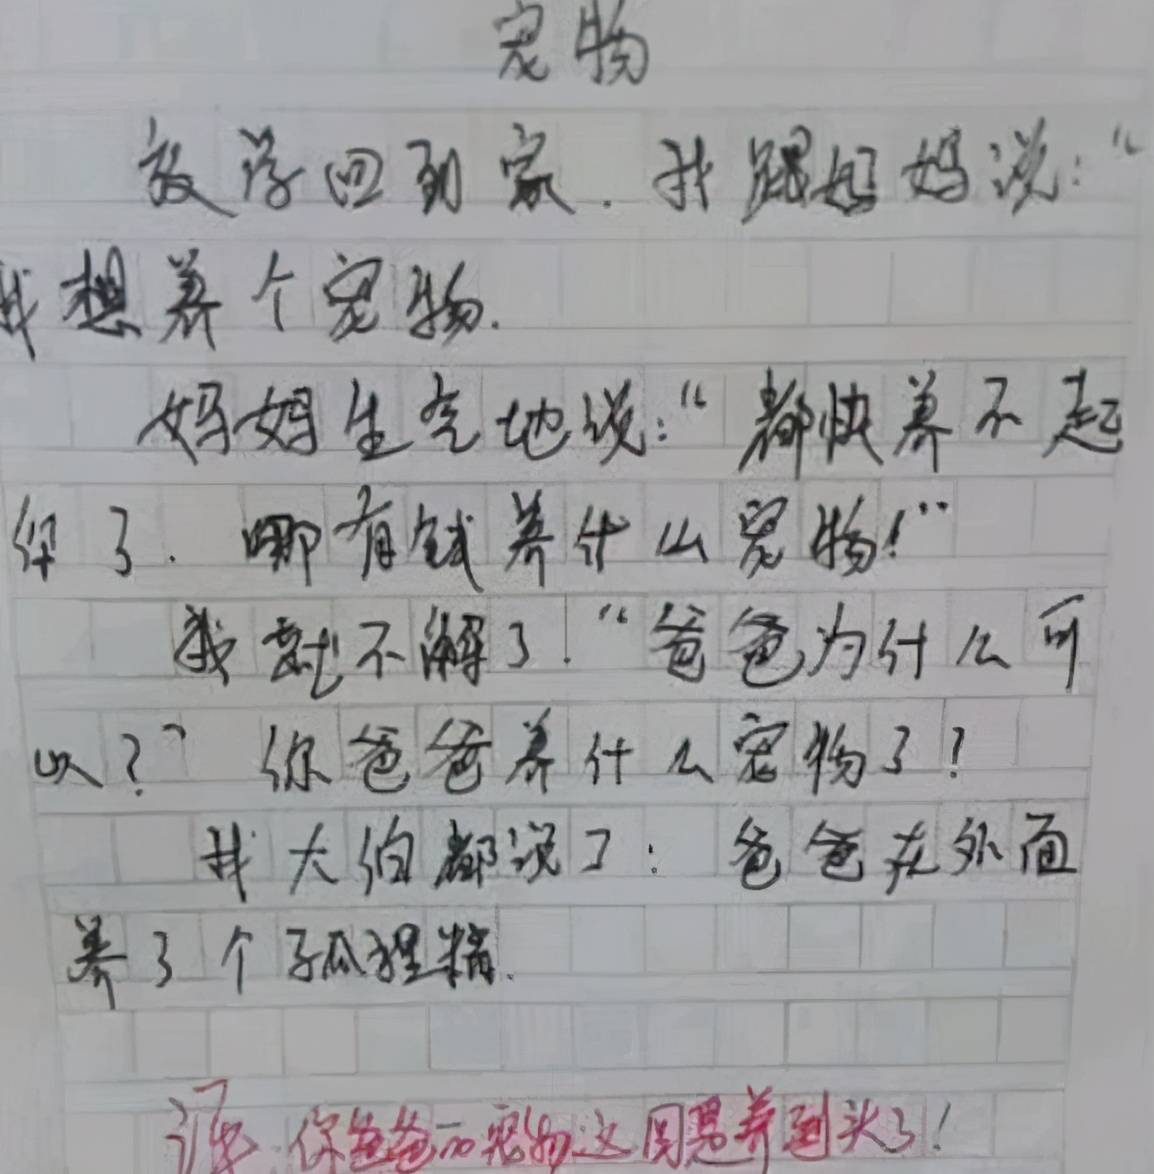 宠物
放学回到家.我跟妈妈说:“
我想养个宠物.
妈妈生气地说:“都快养不起
你了.哪有钱养什么宠物!”
我就不解了!“爸爸为什么可
以?”你爸爸养什么宠物了?
我大伯都说了:爸爸在外面
养了个孤狸精.
你爸爸的宠物这周思养到头了!